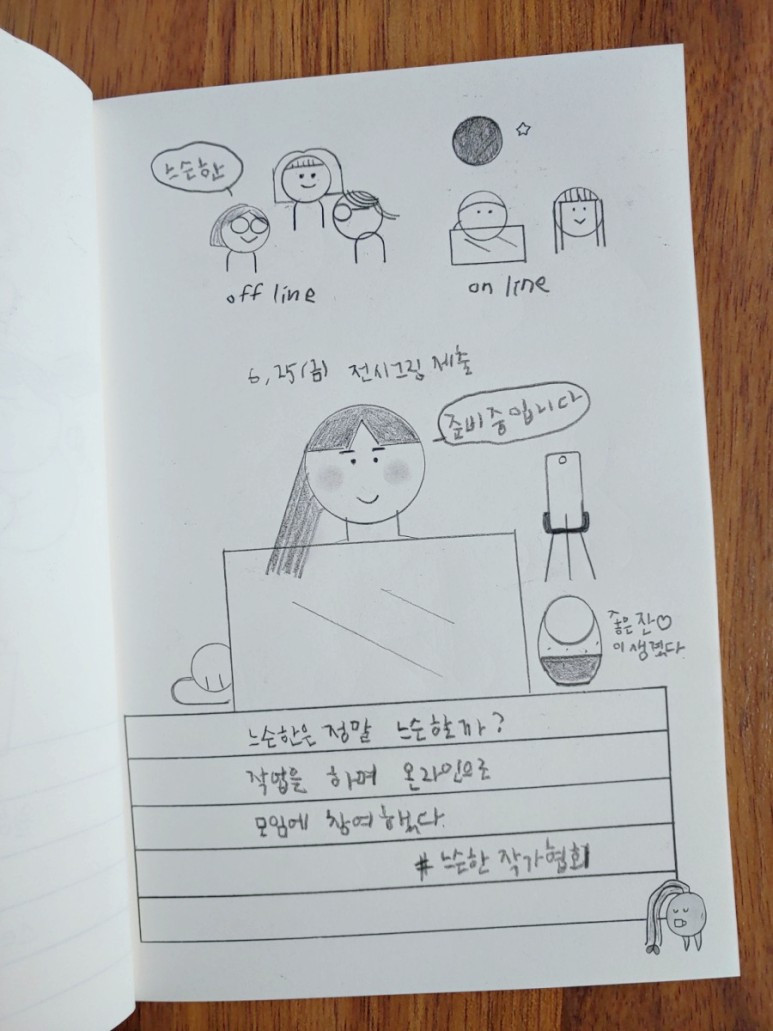 느슨한
off line
on line
6,25(금) 전시그림 제출
준비중입니다
좋은 잔♡
이 생겼다.
느슨한은 정말 느슨할까?
작업을 하며 온라인으로
모임에 참여했다.
# 느슨한 작가협회